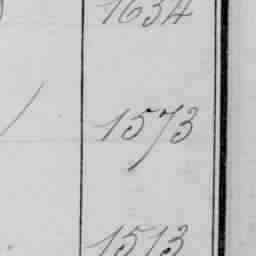 1634
1573
1513